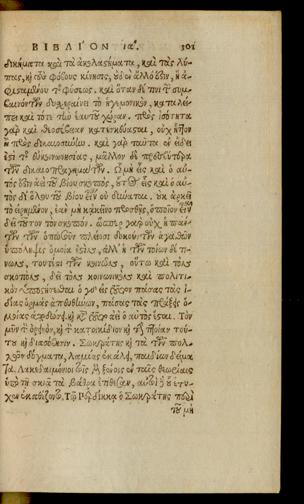 ΒΙΒΛΙΌΝ ια. 301
δικήματα καὶ τὰ ἀκολαστήματα, καὶ τὰς λύ-
πας, καὶ τοὺς φόβους κίνησις, οὐδενὸς ἄλλου ἐστὶν, ἢ ἀ-
φισταμένου τῆς φύσεως. καὶ ὅταν δέ τινι τῶν συμ-
βαινόντων δυσχεραίνει τὸ ἡγεμονικὸν, καταλεί-
πει καὶ τότε τὴν ἑαυτοῦ χώραν. πρὸς ἰσότητα
γὰρ καὶ θεοσέβειαν κατεσκεύασται, οὐχ ἧττον
ἢ πρὸς δικαιοσύνην. καὶ γὰρ ταῦτα ἐν εἴδει
ἐστὶ τῆς εὐκοινωνησίας, μᾶλλον δὲ πρεσβύτερα
τῶν δικαιοπραγημάτων. Ὧι μὴ εἷς καὶ ὁ αὐ-
τός ἐστιν ἀεὶ τοῦ βίου σκοπὸς, οὗτος εἷς καὶ ὁ αὐ-
τὸς δι' ὅλου τοῦ βίου εἶναι οὐ δύναται. οὐκ ἀρκεῖ
τὸ εἰρημένον, ἐὰν μὴ κἀκεῖνο προσθῇς, ὁποῖον εἶναι
δεῖ τοῦτον τὸν σκοπόν. ὥσπερ γὰρ οὐχ ἡ πάν-
των τῶν ὁπωσοῦν πλείοσι δοκούντων ἀγαθῶν
ὑπόληψις ὁμοία ἐστὶν, ἀλλ' ἡ τῶν τοιῶνδέ τι-
νων, τουτέστι τῶν κοινῶν, οὕτω καὶ τὸν
σκοπὸν, δεῖ τὸν κοινωνικὸν καὶ πολιτι-
κὸν ὑποστήσασθαι. ὁ γὰρ εἰς τοῦτον πάσας τὰς ἰ-
δίας ὁρμὰς ἀπευθύνων, πάσας τὰς πράξεις ὁ-
μοίας ἀποδώσει, καὶ κατὰ τοῦτο ἀεὶ ὁ αὐτὸς ἔσται. Τὸν
μῦν τὸν ὀρεινὸν, καὶ τὸν κατοικίδιον καὶ τὴν πτοίαν τού-
του καὶ διασόβησιν. Σωκράτης καὶ τὰ τῶν πολ-
λῶν δόγματα, Λαμίας ἐκάλει, παιδίων δείμα-
τα. Λακεδαιμόνιοι τοῖς ξένοις ἐν ταῖς θεωρίαις
ὑπὸ τῇ σκιᾷ τὰ βάθρα ἐτίθεσαν, αὐτοὶ δὲ οὗ ἔτυ-
χον ἐκαθέζοντο. Τῷ Περδίκκᾳ ὁ Σωκράτης περὶ
τοῦ μὴ